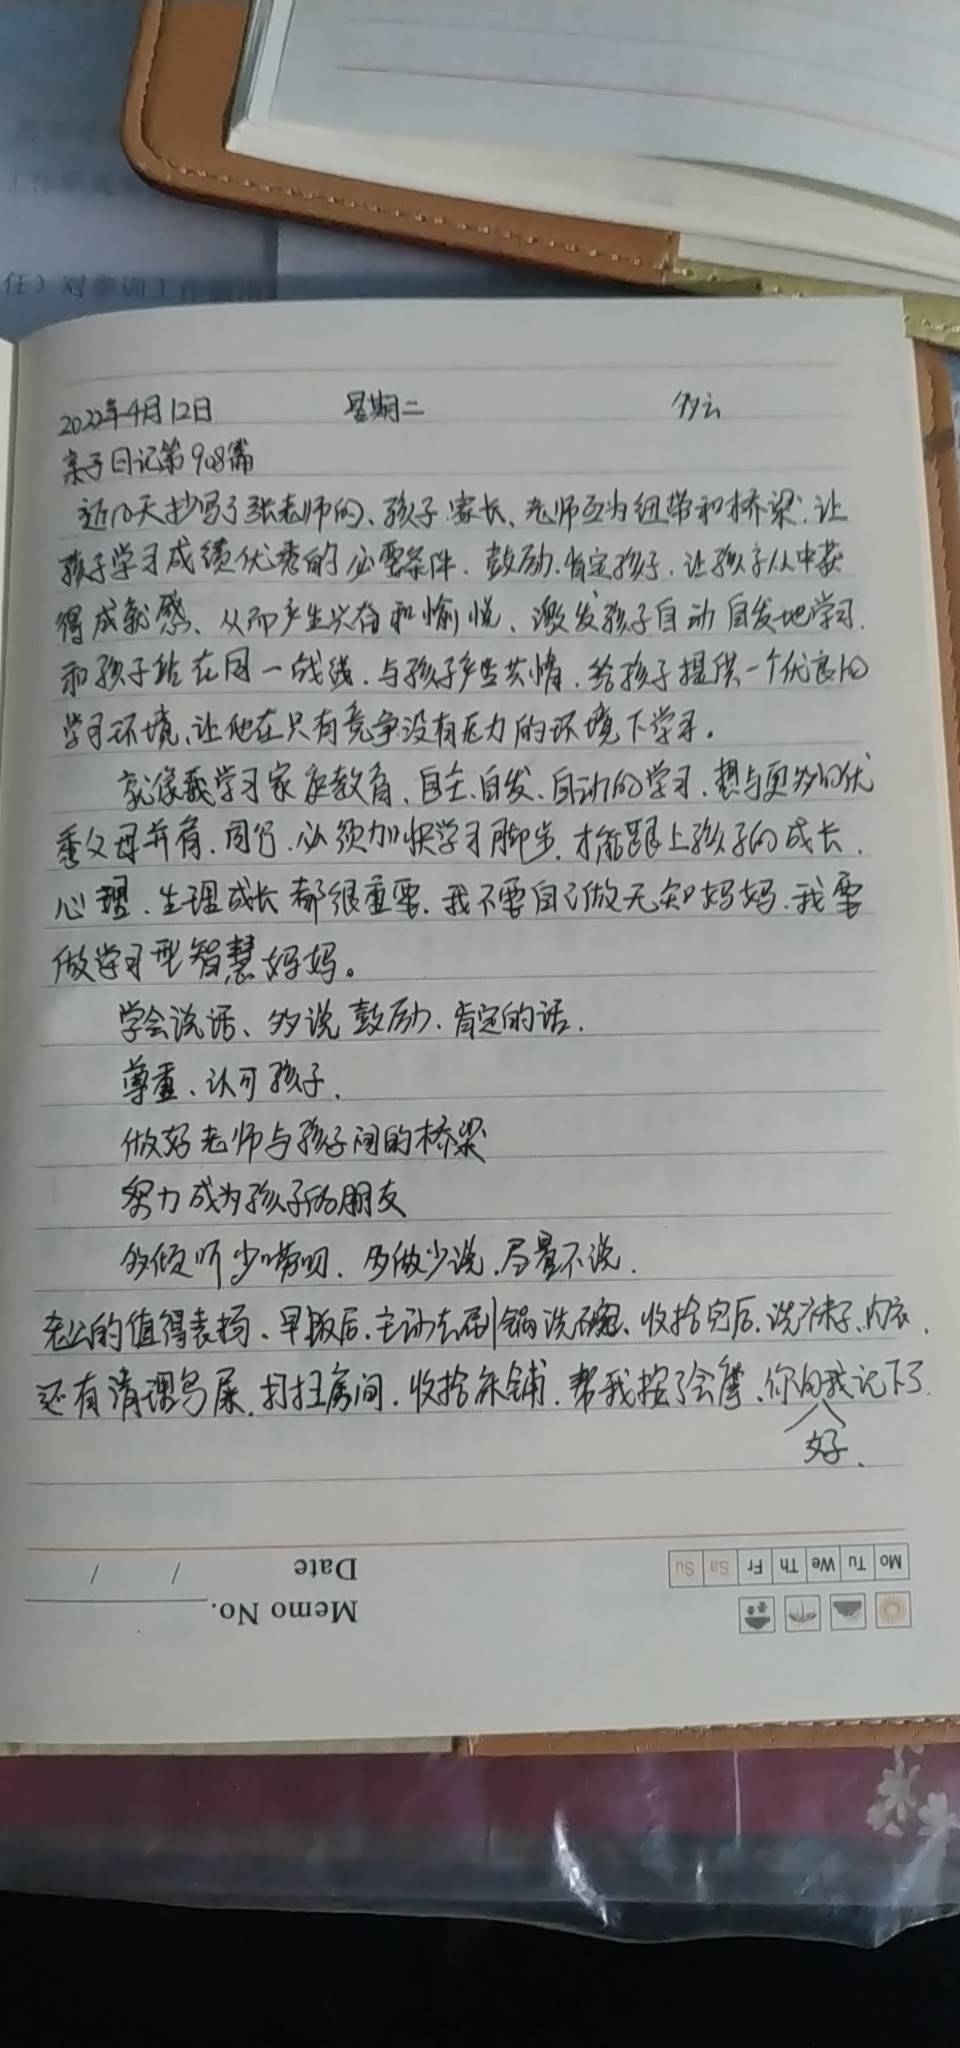 任）对参训工作
2022年4月12日 星期二 多云
亲子日记第908篇
近几天抄写了张老师的、孩子、家长、老师互为纽带和桥梁、让
孩子学习成绩优秀的必要条件、鼓励、肯定孩子、让孩子从中获
得成就感、从而产生兴奋和愉悦、激发孩子自动自发地学习、
和孩子站在同一战线、与孩子产生共情、给孩子提供一个优良的
学习环境、让他在只有竞争没有压力的环境下学习。
就像我学习家庭教育、自主、自发、自动的学习、想与更多的优
秀父母并肩、同行、必须加快学习脚步、才能跟上孩子的成长、
心理、生理成长都很重要、我不要自己做无知妈妈、我要
做学习型智慧妈妈。
学会说话、多说鼓励、肯定的话、
尊重、认可孩子、
做好老师与孩子间的桥梁
努力成为孩子的朋友
多倾听少唠叨、多做少说、尽量不说、
老公的值得表扬、早饭后、主动去刷锅洗碗、收拾完后、洗袜子、内衣、
还有清理鸟屎、打扫房间、收拾床铺、帮我按了会摩、你的我记下了
好、
Mo Tu We Th Fr Sa Su
Date / /
Memo No.